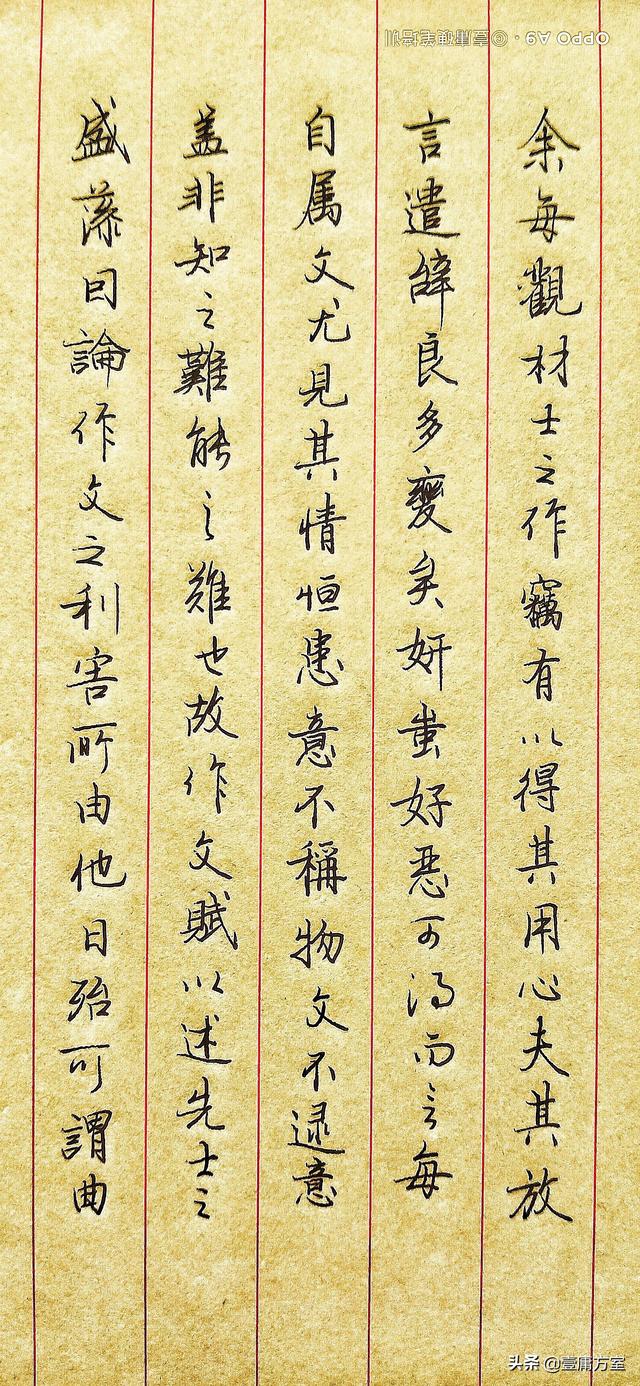 余每觀材士之作竊有以得其用心夫其放
言遣辭良多變矣妍蚩好惡可得而言每
自属文尤見其情恒患意不稱物文不逮意
盖非知之難能之難也故作文賦以述先士之
盛藻因論作文之利害所由他日殆可謂曲
OPPO A9 · ©
头条 @壹庸方室